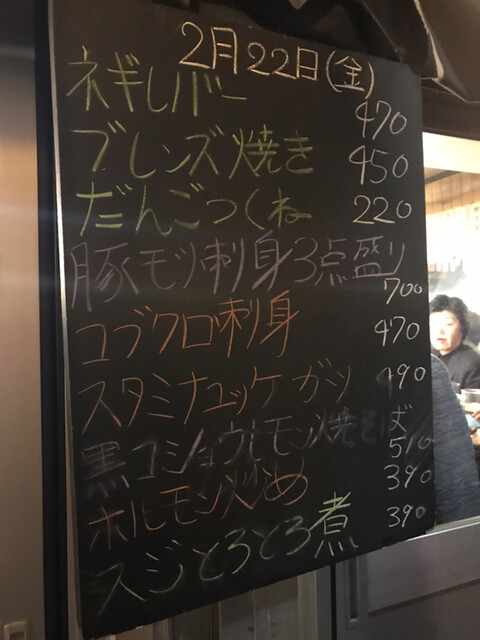 2月22日(金)
ネギレバー 470
ブレンズ焼き 450
だんごつくね 220
豚モツ刺身3点盛り 700
コブクロ刺身 470
スタミナユッケガツ 490
黒コショウホルモン焼そば 510
ホルモン炒め 390
スジとろとろ煮 390